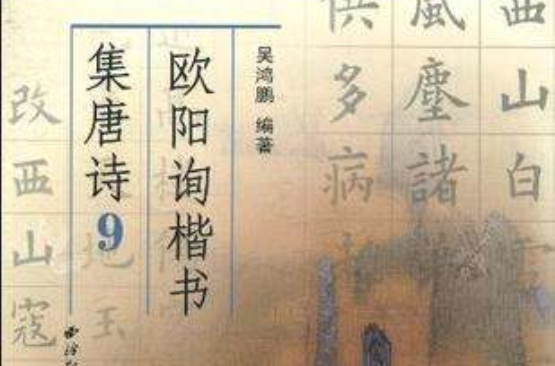 西山白
風塵諸
供多病
吴鸿鹏 编著
欧阳询楷书
集唐诗9
玉
改西山寇
西泠